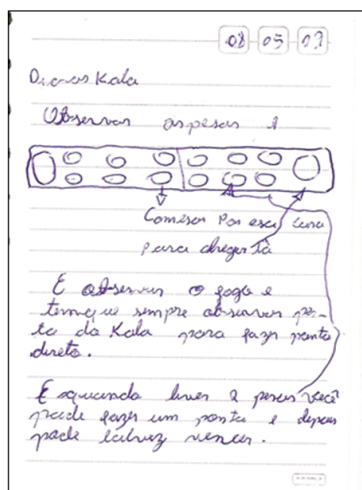 08 05 07
Dicas Kala
Observar as pesas e
Comesar por esa casa
para chegar lá
E observar o jogo e
tem que sempre observar per-
to da Kala para fazer ponto
direto.
E quando tiver 2 pesas você
pode fazer um ponto e depois
pode talvez vencer.